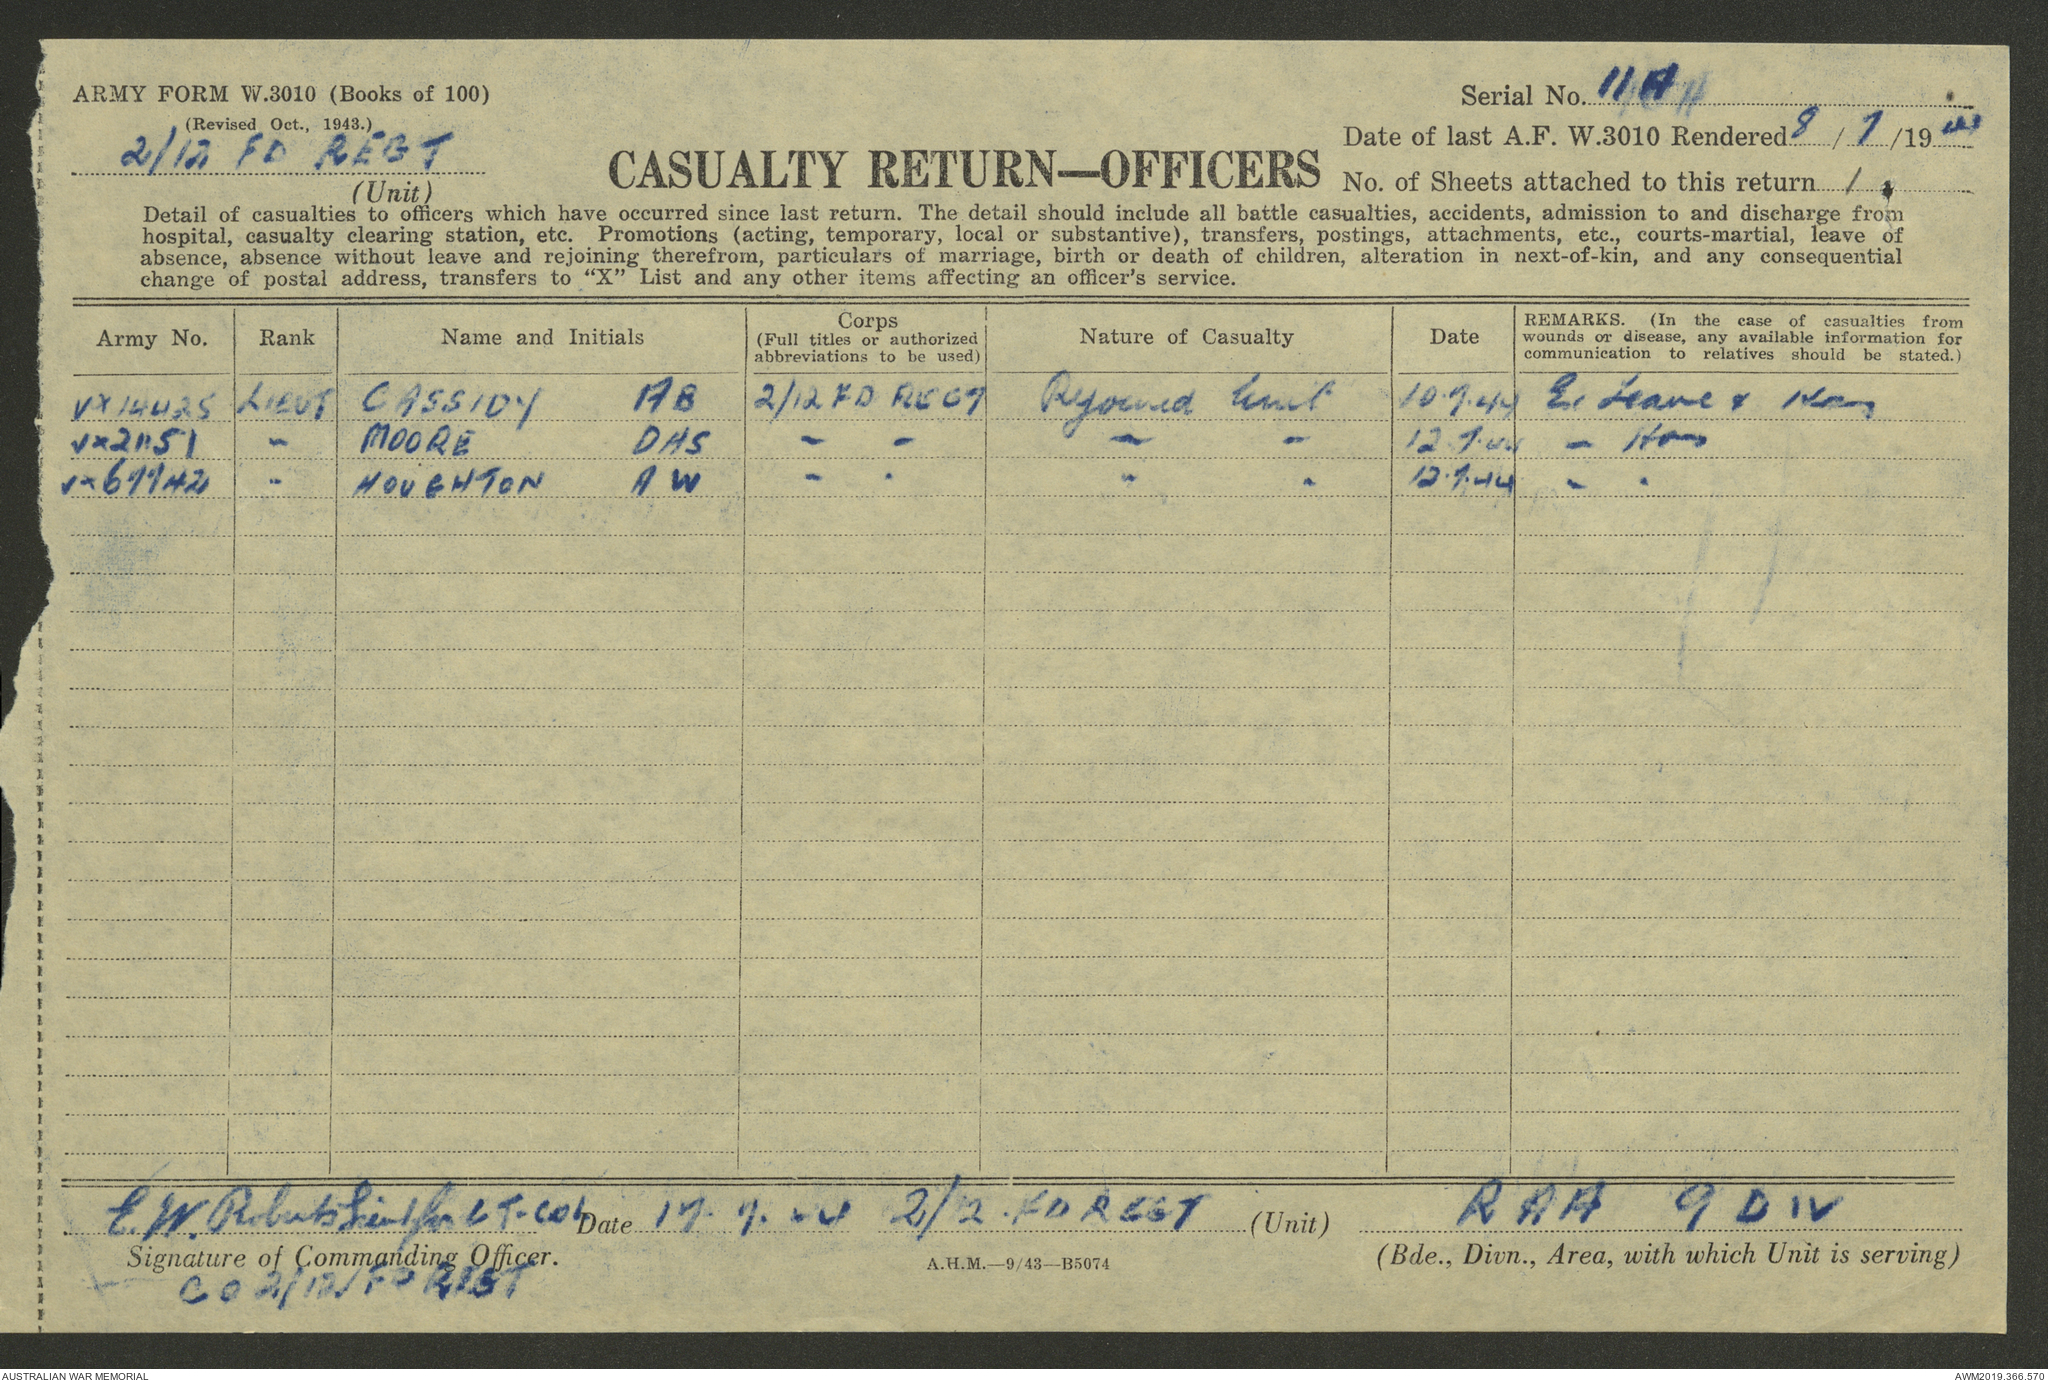 ARMY FORM W.3010 (Books of 100)
(Revised Oct., 1943.)
2/12 FD REGT
(Unit)
CASUALTY RETURN—OFFICERS
Serial No. 11A
Date of last A.F. W.3010 Rendered 8/7/1944
No. of Sheets attached to this return 1
Detail of casualties to officers which have occurred since last return. The detail should include all battle casualties, accidents, admission to and discharge from
hospital, casualty clearing station, etc. Promotions (acting, temporary, local or substantive), transfers, postings, attachments, etc., courts-martial, leave of
absence, absence without leave and rejoining therefrom, particulars of marriage, birth or death of children, alteration in next-of-kin, and any consequential
change of postal address, transfers to "X" List and any other items affecting an officer's service.
Army No. Rank Name and Initials Corps (Full titles or authorized abbreviations to be used) Nature of Casualty Date REMARKS. (In the case of casualties from wounds or disease, any available information for communication to relatives should be stated.)
VX14425 LIEUT CASSIDY AB 2/12 FD REGT Rejoined Unit 10.7.44 Ex Leave &
MOORE DHS 12.7.44
VX67742 " HOUGHTON A W " " " " 12.7.44 " "
E.W. Roberts Lieut for LT-COL Date 17.7.44 2/12 FD REGT (Unit) RAA 9 DIV
Signature of Commanding Officer. A.H.M.—9/43—B5074 (Bde., Divn., Area, with which Unit is serving)
CO 2/12 FD REGT
AUSTRALIAN WAR MEMORIAL AWM2019.366.570